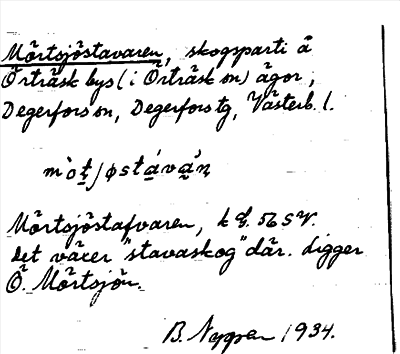 Mörtsjöstavaren, skogsparti å
Örträsk bys (i Örträsk sn) ägor,
Degerfors sn, Degerfors tg, Västerb. l.
Mörtsjöstafvaren, k 56 SV.
Det växer "stavaskog" där. Ligger
Ö. Mörtsjön.
B. Nygren 1934.